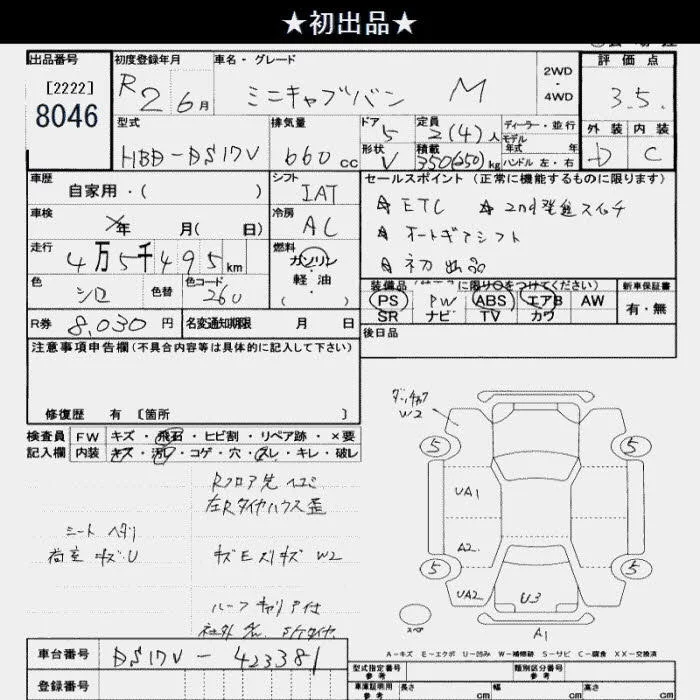 ★初出品★
出品番号
[2222]
8046
初度登録年月
R2 6月
車名・グレード
ミニキャブバン M
2WD
・
4WD
評価点
3.5
外装 内装
D C
型式
HBD-DS17V
排気量
660 cc
ドア 5
形状 V
定員 2(4)人
積載 350(250)kg
ディーラー・並行
モデル年式 年
ハンドル 左・右
車歴
自家用・( )
シフト
IAT
車検
年 月( 日)
冷房
AC
走行
4万5千495km
燃料
ガソリン
・
軽油
色
シロ
色替
色コード
260
R券 8,030円
名変通知期限 月 日
セールスポイント(正常に機能するものに限ります)
☆ ETC ☆ 2nd発進スイッチ
☆ オートギアシフト
☆ 初出品
装備品 に限り○をつけてください)
PS PW ABS エアB AW
SR ナビ TV カワ
新車保証書
有・無
後日品
注意事項申告欄(不具合内容等は具体的に記入して下さい)
修復歴 有 [箇所 ]
検査員記入欄
FW キズ・飛石・ヒビ割・リペア跡・×要
内装 キズ・汚レ・コゲ・穴・スレ・キレ・破レ
Rフロア先 ヘコミ
左Rタイヤハウス歪
シート ヘタリ
荷室 キズ・U
キズEズリキズ W2
ルーフキャリア付
W2
5 5
UA1
A2
5 5
UA2 U3
スペア
A1
A-キズ E-エクボ U-凹み W-補修跡 S-サビ C-腐食 XX-交換済
車台番号 DS17V-423381
登録番号
型式指定番号
参考
類別区分番号
参考
車庫証明用
参考
長さ cm 幅 cm 高さ cm